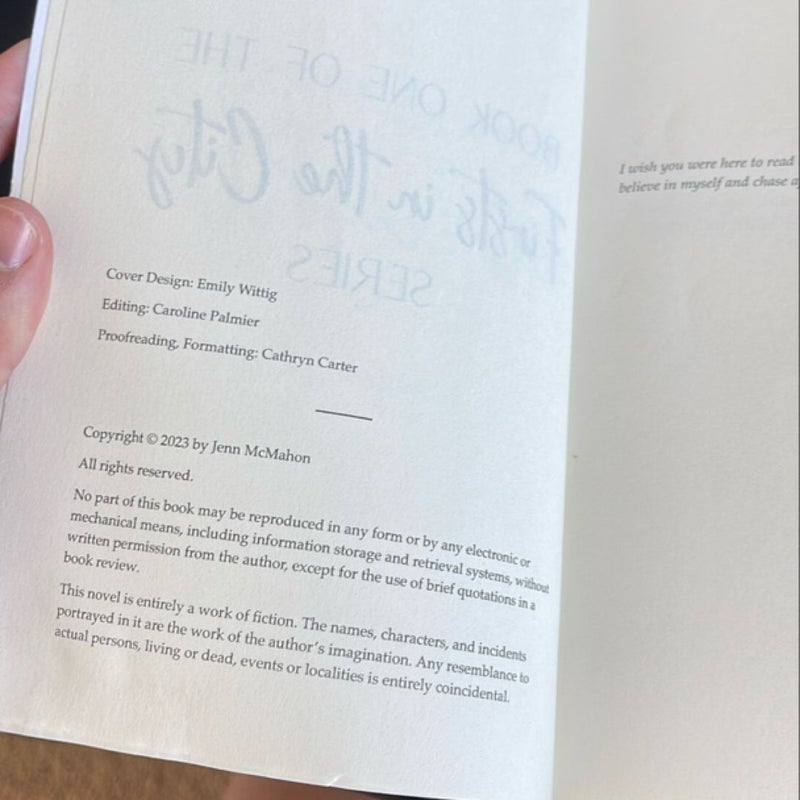 BOOK ONE OF THE
Firsts in the City
SERIES
Cover Design: Emily Wittig
Editing: Caroline Palmier
Proofreading, Formatting: Cathryn Carter
Copyright © 2023 by Jenn McMahon
All rights reserved.
No part of this book may be reproduced in any form or by any electronic or
mechanical means, including information storage and retrieval systems, without
written permission from the author, except for the use of brief quotations in a
book review.
This novel is entirely a work of fiction. The names, characters, and incidents
portrayed in it are the work of the author's imagination. Any resemblance to
actual persons, living or dead, events or localities is entirely coincidental.
I wish you were here to read
believe in myself and chase